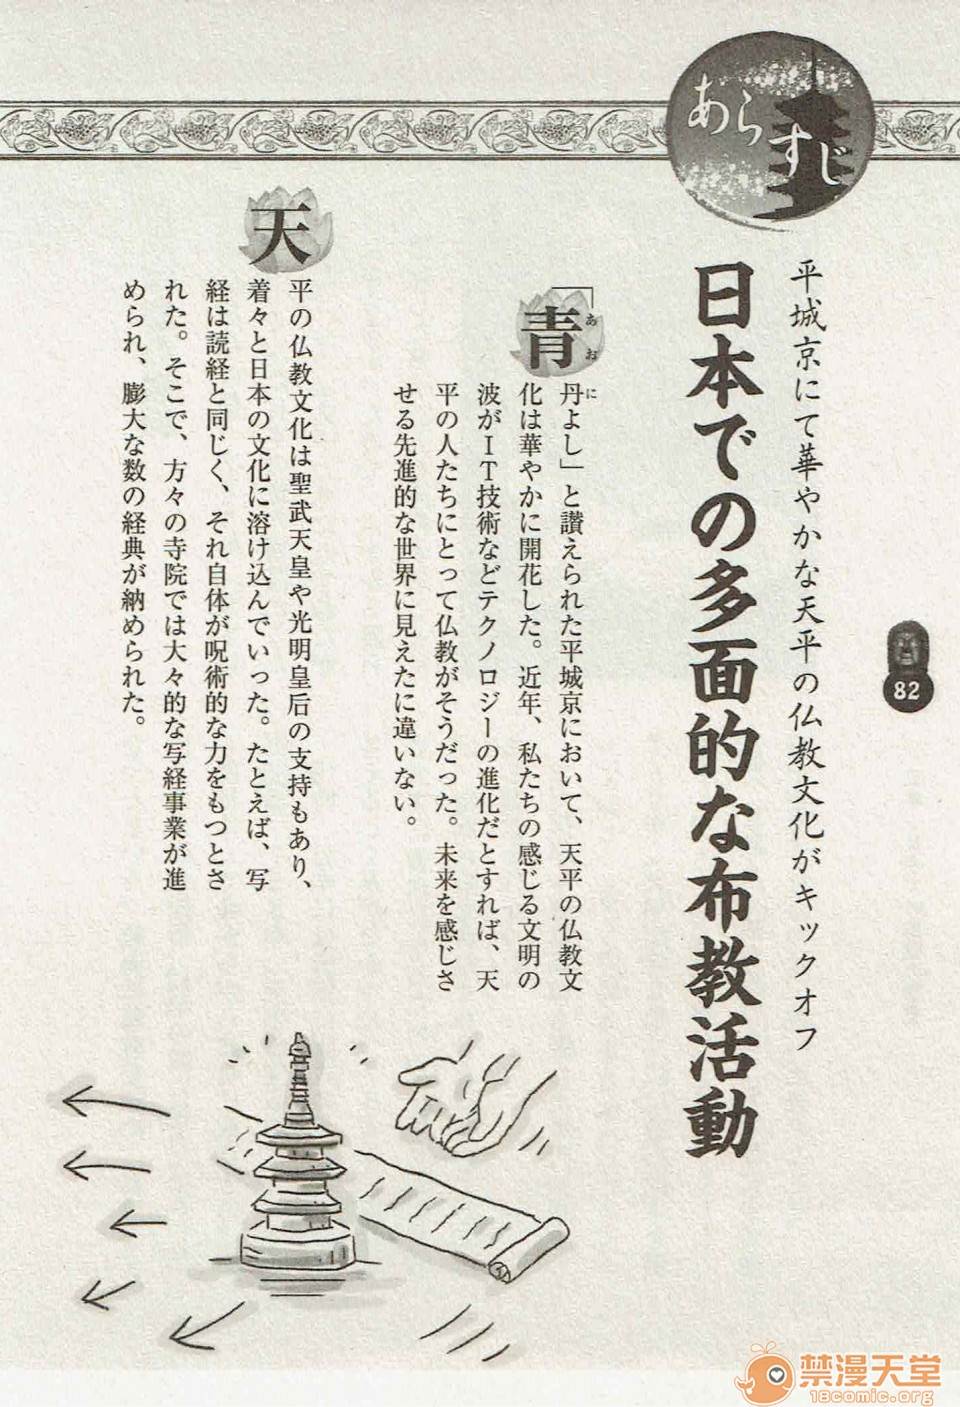 あらすじ
平城京にて華やかな天平の仏教文化がキックオフ
日本での多面的な布教活動
82
「青
あお
丹よし」と讃えられた平城京において、天平の仏教文
に
化は華やかに開花した。近年、私たちの感じる文明の
波がIT技術などテクノロジーの進化だとすれば、天
平の人たちにとって仏教がそうだった。未来を感じさ
せる先進的な世界に見えたに違いない。
天
平の仏教文化は聖武天皇や光明皇后の支持もあり、
着々と日本の文化に溶け込んでいった。たとえば、写
経は読経と同じく、それ自体が呪術的な力をもつとさ
れた。そこで、方々の寺院では大々的な写経事業が進
められ、膨大な数の経典が納められた。
禁漫天堂
18comic.org